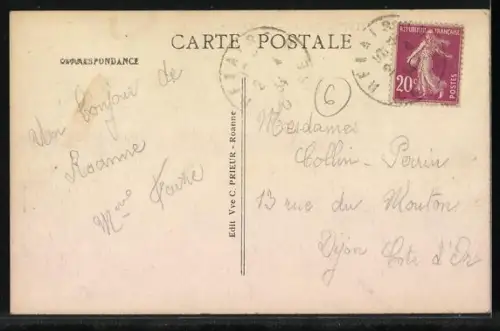 CARTE POSTALE
CORRESPONDANCE
REPUBLIQUE FRANÇAISE
20c
POSTES
6
Un bonjour de
Roanne
Mme Favre
Edit Vve C. PRIEUR - Roanne
Mesdames
Collin-Perrin
13 rue du Mouton
Dijon Côte d'Or